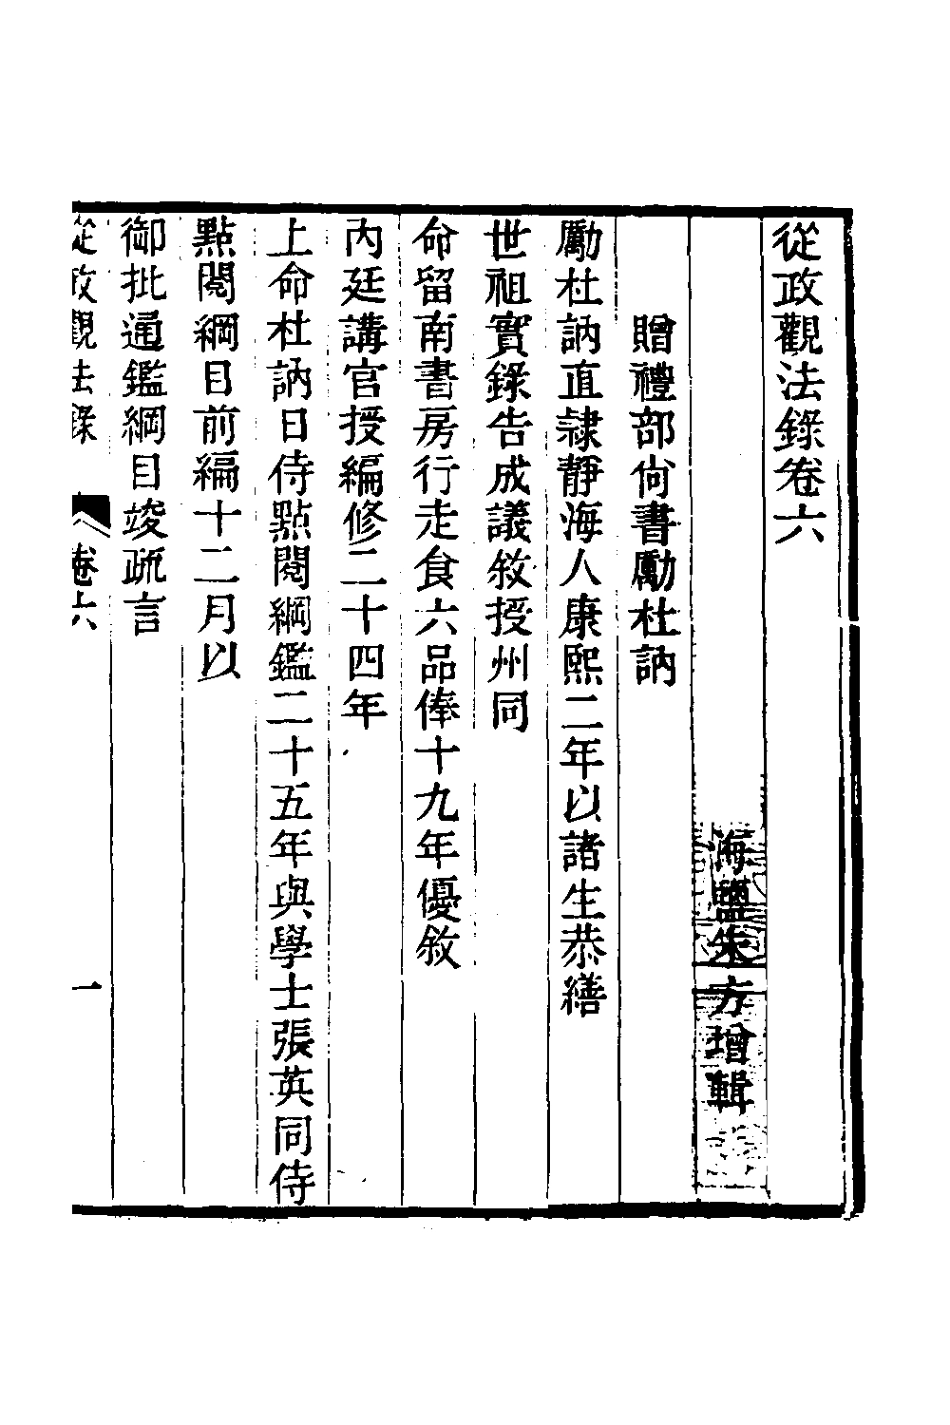 從政觀法錄卷六
海鹽朱方增輯
贈禮部尙書勵杜訥
勵杜訥直隸靜海人康熙二年以諸生恭繕
世祖實錄告成議敘授州同
命留南書房行走食六品俸十九年優敘
內廷講官授編修二十四年
上命杜訥日侍點閱綱鑑二十五年與學士張英同侍
點閱綱目前編十二月以
御批通鑑綱目竣疏言
從政觀法錄 卷六 一